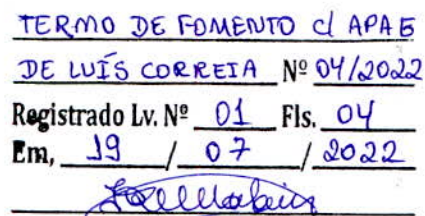 TERMO DE FOMENTO c/ APAE
DE LUÍS CORREIA Nº 04/2022
Registrado Lv. Nº 01 Fls. 04
Em, 19 / 07 / 2022